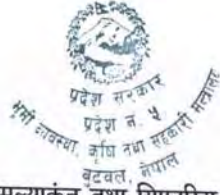 प्रदेश सरकार
प्रदेश नं. ५
भूमी व्यवस्था, कृषि तथा सहकारी मन्त्रालय
बुटवल, नेपाल
तथा